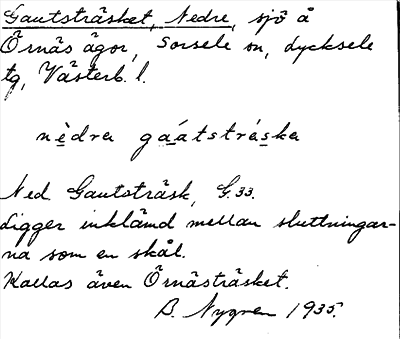 Gautsträsket, Nedre, sjö å
Örnäs ägor, Sorsele sn, Lycksele
tg, Västerb. l.
nèdra gáátstráska
Ned Gautsträsk, G. 33.
Ligger inklämd mellan sluttningar-
na som en skål.
Kallas även Örnästräsket.
B. Nygren 1935.